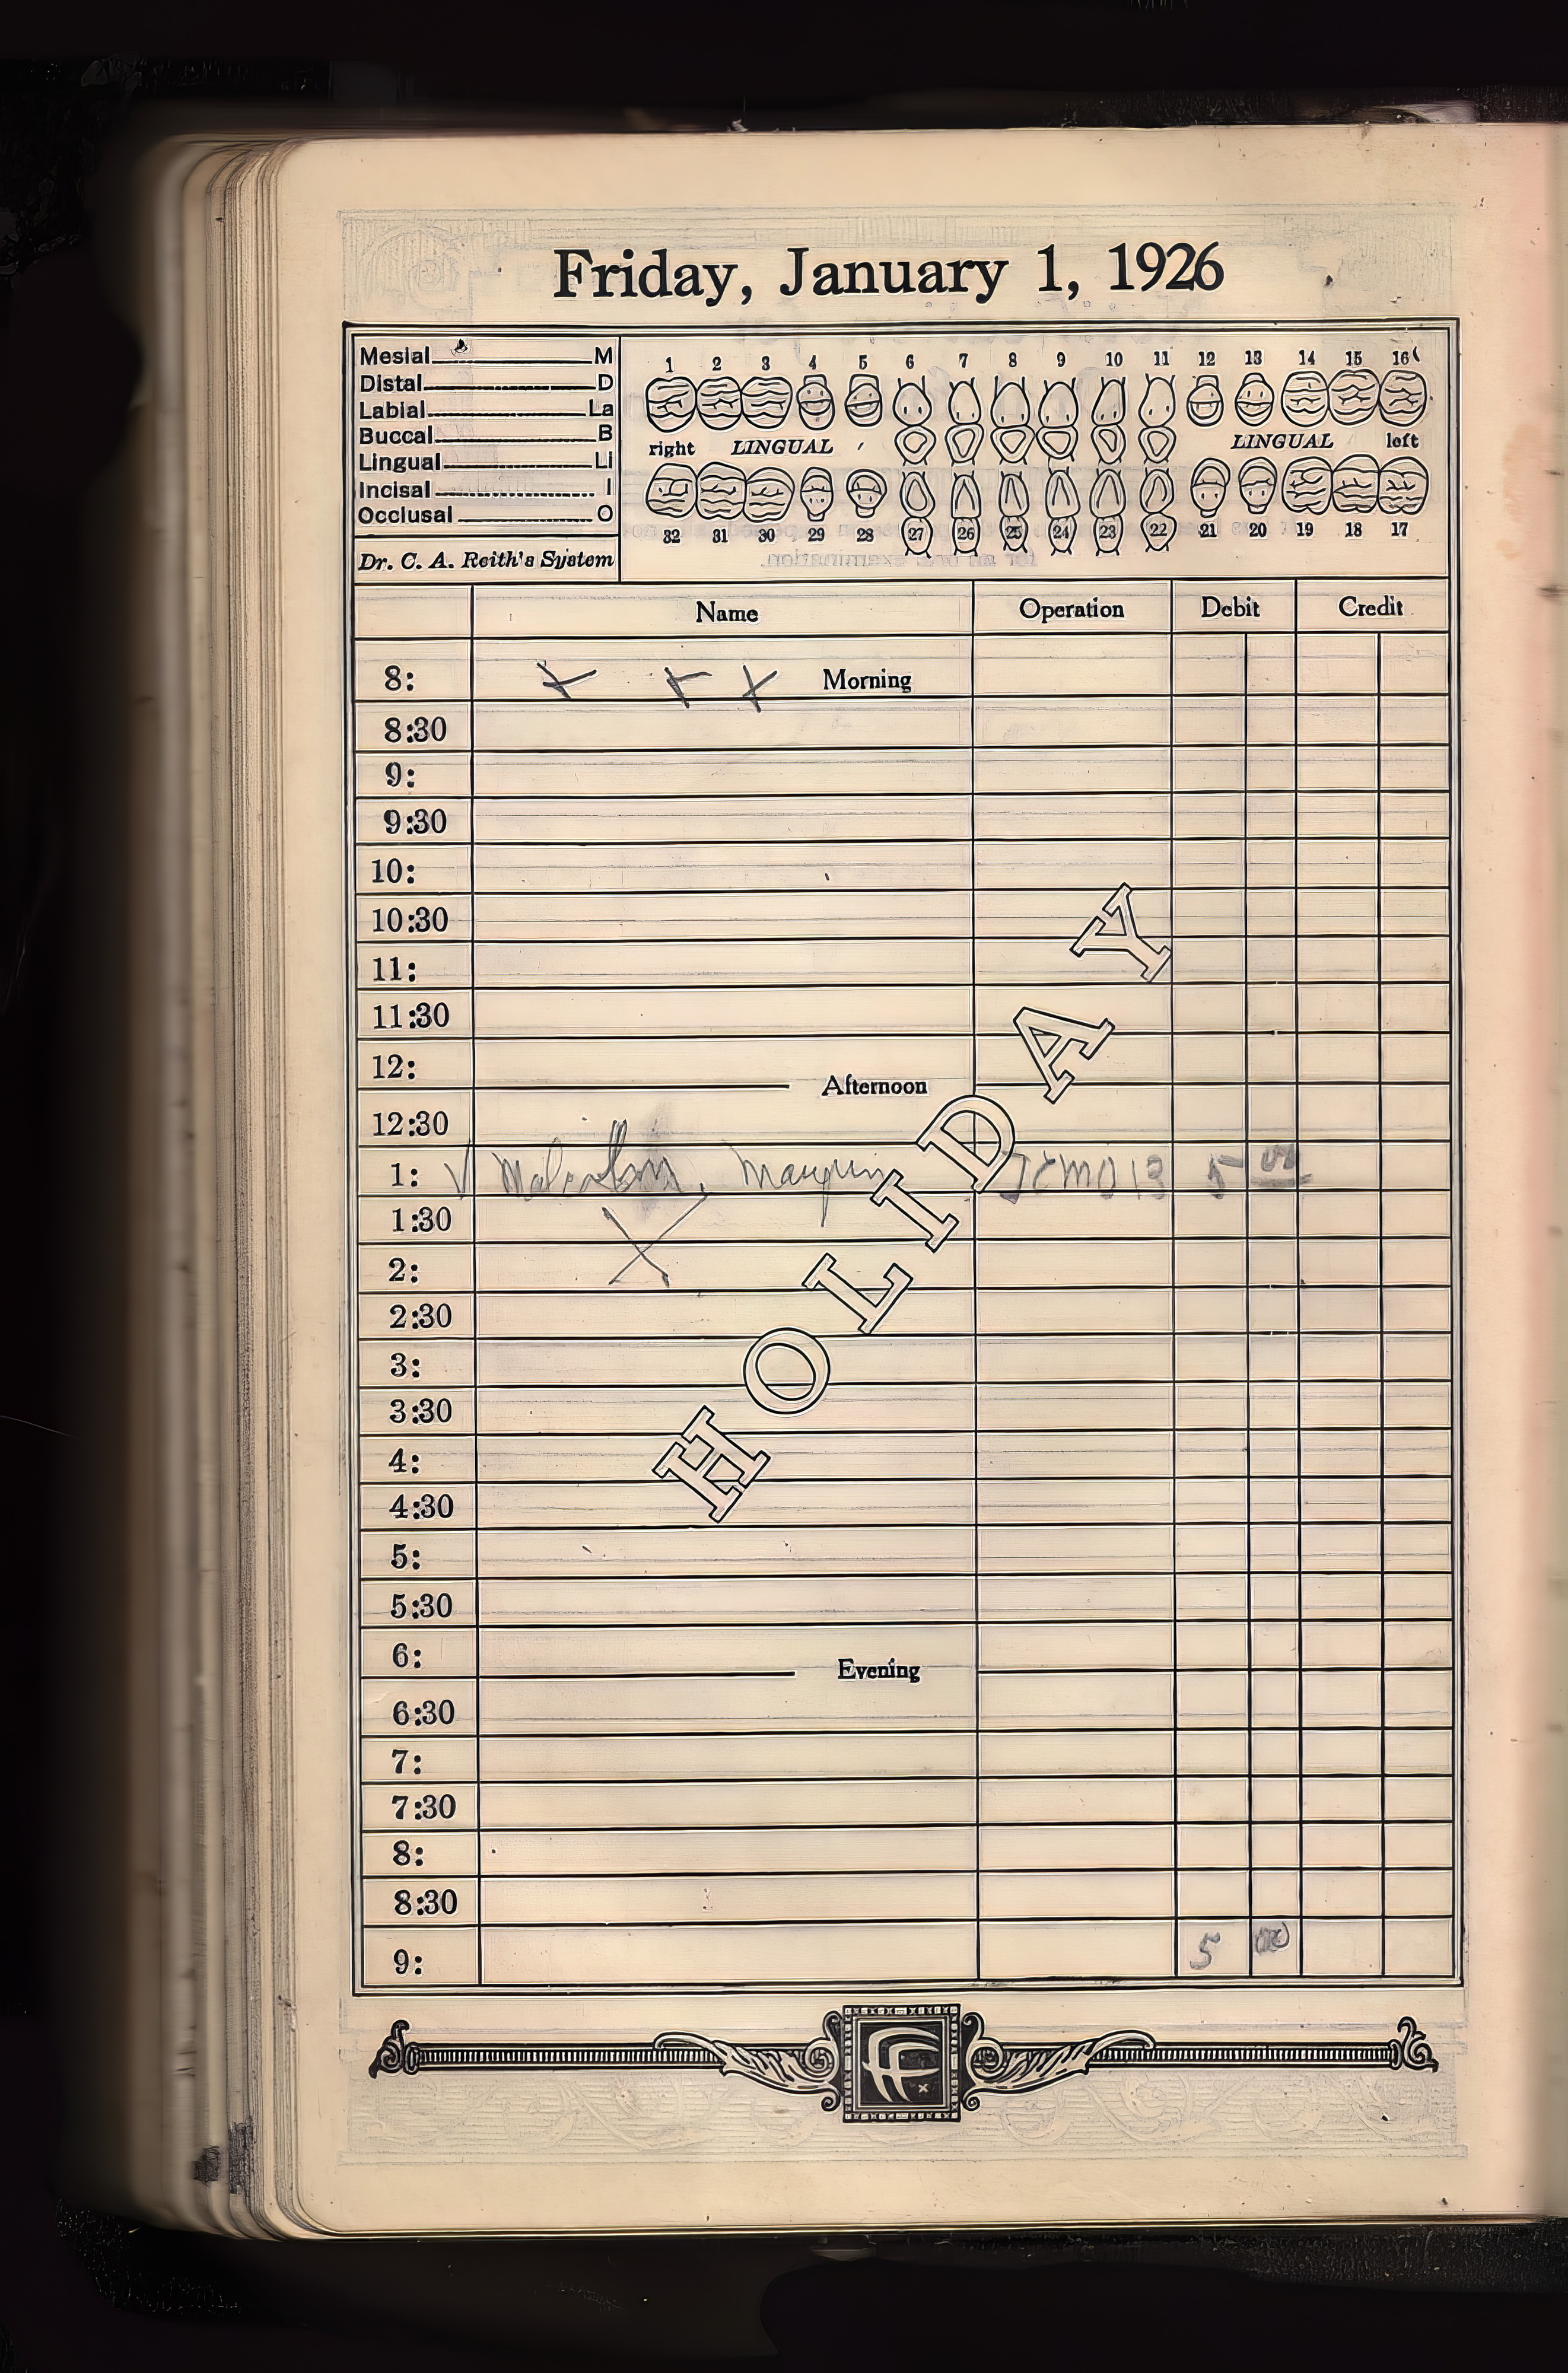 Friday, January 1, 1926
Mesial M
Distal D
Labial La
Buccal B
Lingual Li
Incisal I
Occlusal O
Dr. C. A. Reith's System
1 2 3 4 5 6 7 8 9 10 11 12 13 14 15 16
right LINGUAL LINGUAL left
32 31 30 29 28 27 26 25 24 23 22 21 20 19 18 17
Name Operation Debit Credit
8: Morning
8:30
9:
9:30
10:
10:30
11:
11:30
12:
Afternoon
12:30
1: 5 00
1:30
2:
2:30
3:
3:30
4:
4:30
5:
5:30
6:
Evening
6:30
7:
7:30
8:
8:30
9: 5 00
HOLIDAY